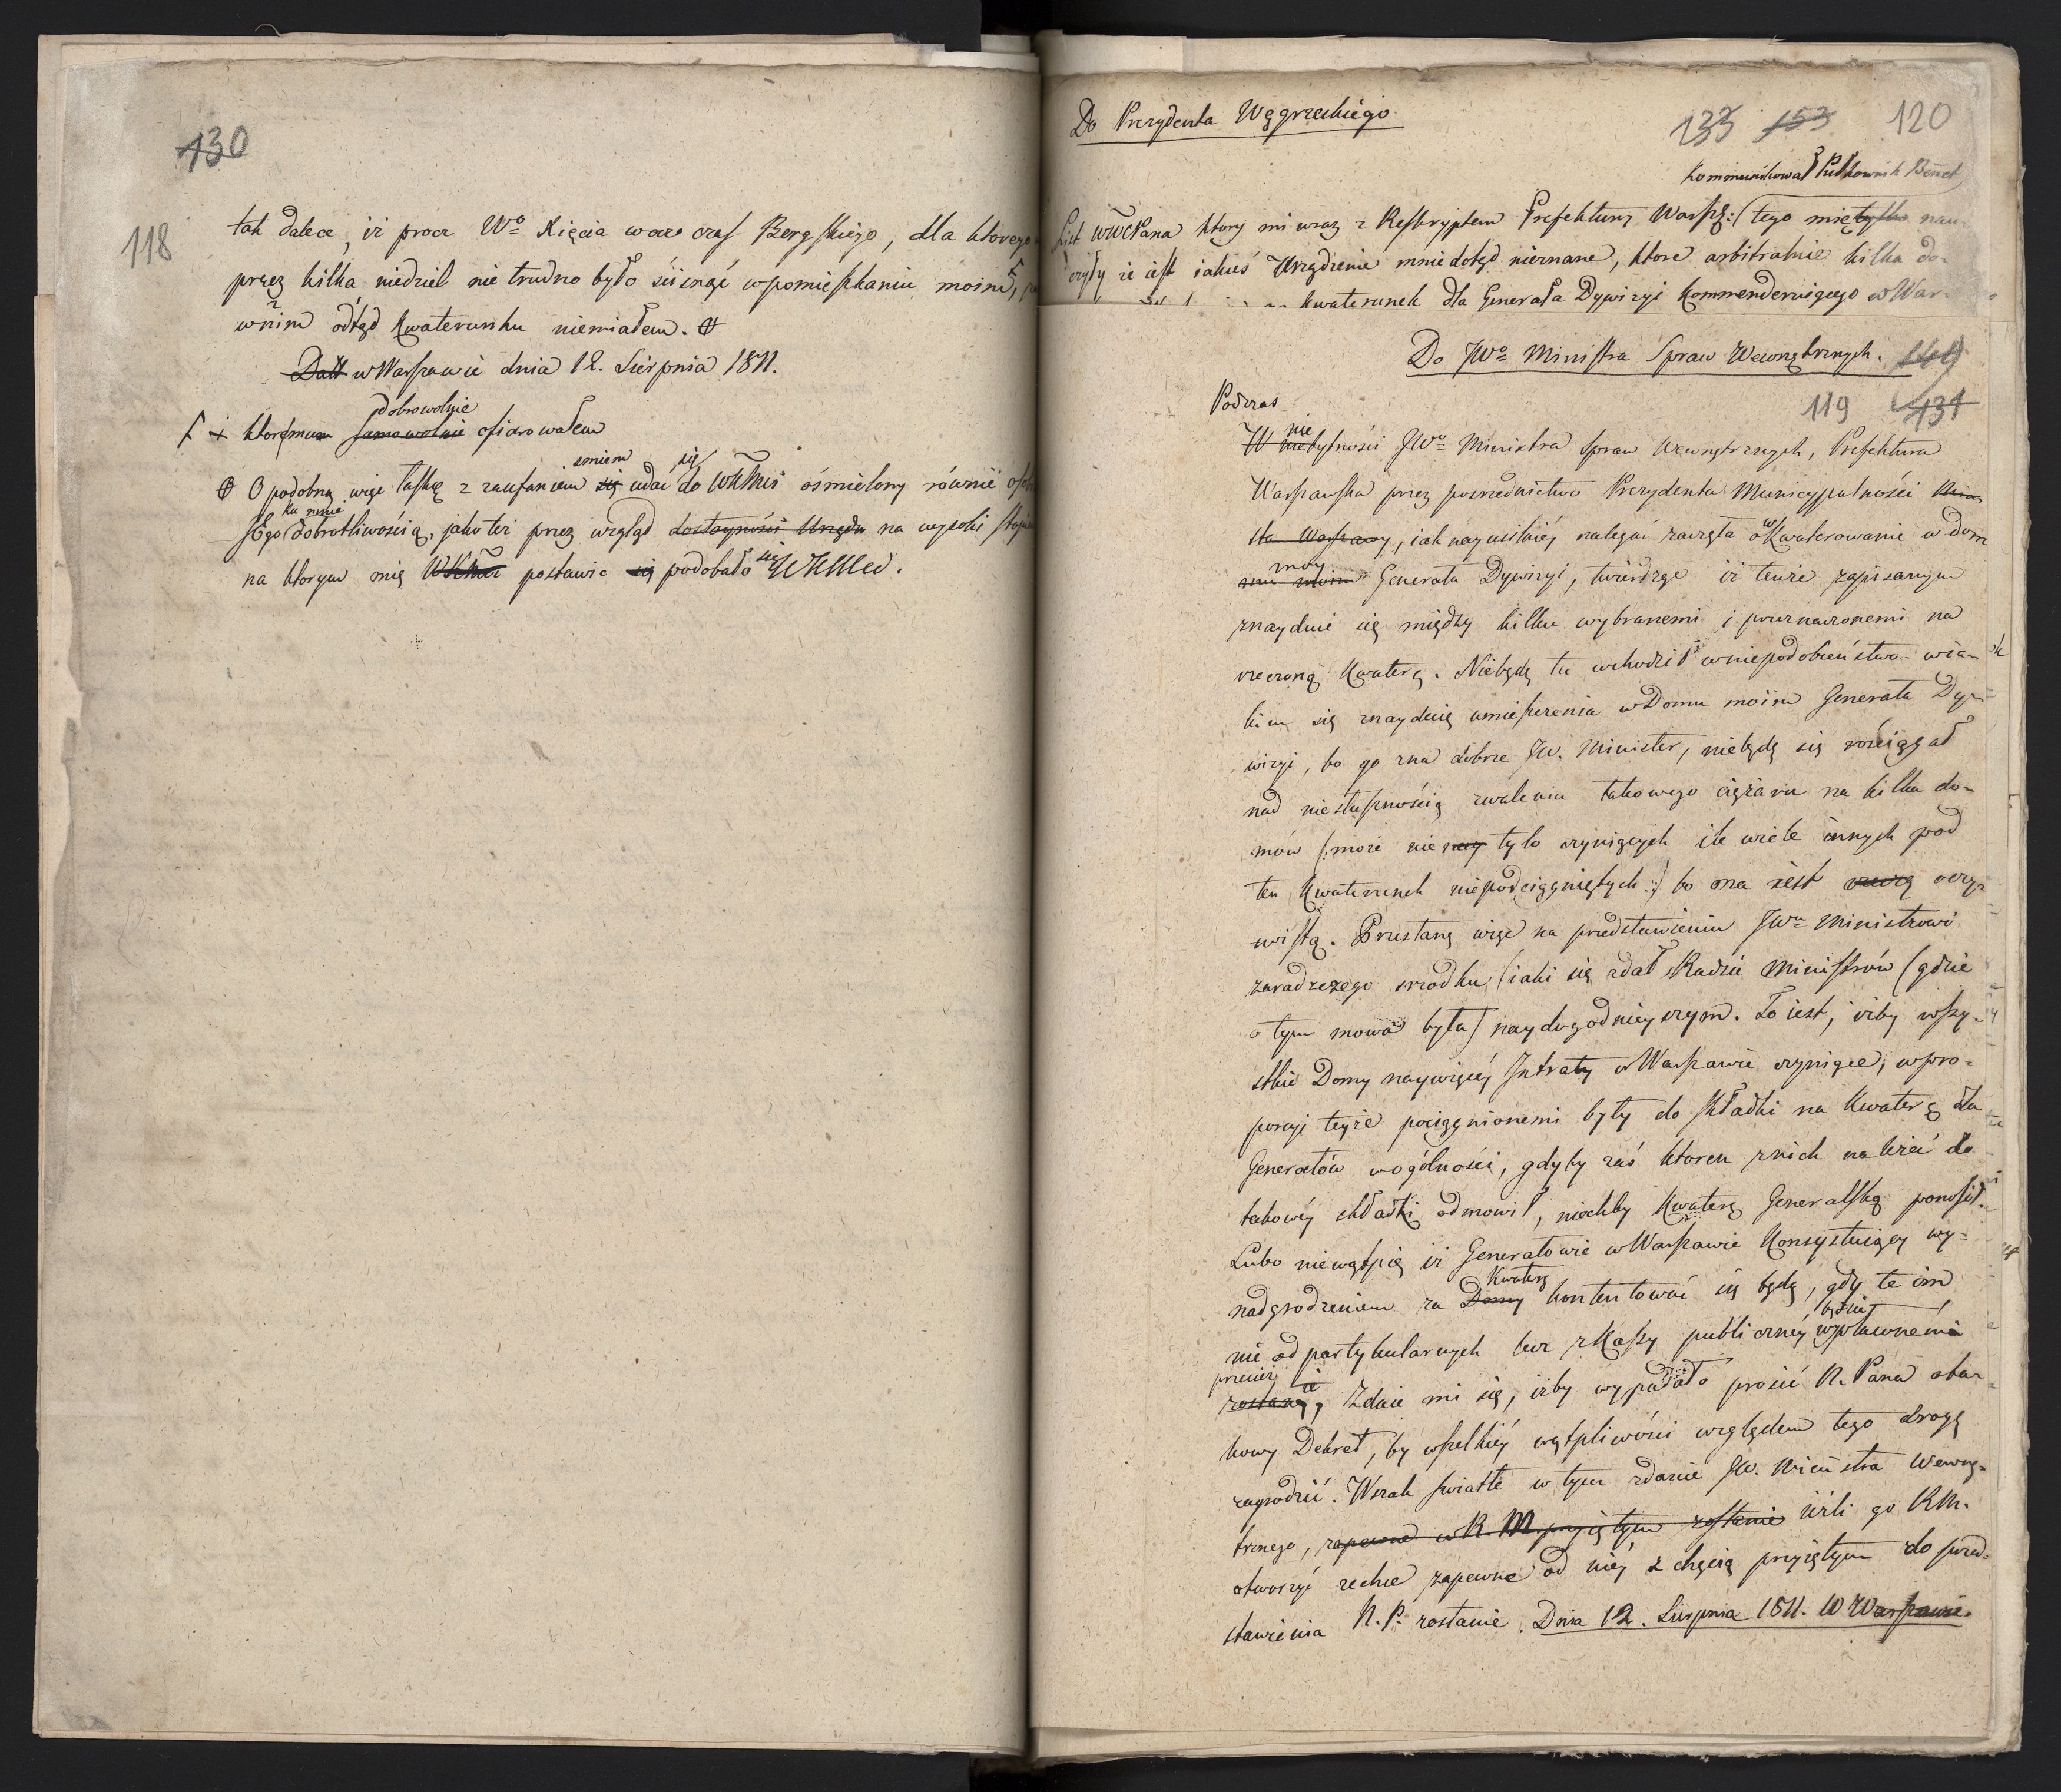 130
118
tak dalece, iż procz Wo Xięcia w ow czas Bergskiego, dla ktorego
przez kilka niedziel nie trudno było ścisnąć w pomieszkaniu moim,
w nim odtąd Kwaterunku niemiałem.
Datt w Warszawie dnia 12. Sierpnia 1811.
dobrowolnie
ktoremu samowolnie ofiarowałem
smiem się
O podobną więc łaskę z zaufaniem się udać do WKMci ośmielony równie
ku mnie
JEgo dobrotliwością, jako też przez wzgląd dostoyności Urzędu na wysoki
na ktorym mię WKMci postawić się podobało się WKMci.
Do Prezydenta Węgrzeckiego
133 153 120
Kommunikował Pułkownik Benet
List WWćPana ktory mi wraz z Reskryptem Prefektury Warsz: (tego mię tylko
że iest iakieś Urządzenie mnie dotąd nieznane, ktore arbitralnie kilka do-
kwaterunek dla Generała Dywizyi Kommenderuiącego w War-
Do JWo Ministra Spraw Wewnętrznych.
119 131
Podczas
nie
W niebytności JWo Ministra Spraw Wewnętrznych, Prefektura
Warszawska przez pozrednictwo Prezydenta Municypalności
sta Warszawy, iak nayusilniéy nalegać zaczęła o Kwaterowanie w dom
moy
mu moim Generała Dywizyi, twierdząc iż tenże zapisanym
znayduie się między kilku wybranemi i poznaczonemi na
rzeczoną Kwaterę. Niebędę tu wchodził w niepodobieństwo w ia-
kim się znayduię umieszczenia w Domu moim Generała Dy-
wizyi, bo go zna dobrze JW. Minister, niebędę się rościągał
nad niesłusznością zwalenia takowego ciężaru na kilka do-
mów (:może nie tylo czyniących ile wiele innych pod
ten Kwaterunek niepodciągniętych:) bo ona iest rzeczą oczy-
wistą. Przestanę więc na przedstawieniu JWu Ministrowi
zaradczego srzodku (iaki się zdał Radzie Ministrów (gdzie
o tym mowa była) naydogodnieyszym. To iest, iżby wszy-
stkie Domy naywięcéy Intraty w Warszawie czyniące, w pro-
porcyi teyże pociągnionemi były do składki na Kwaterę dla
Generałów w ogólności, gdyby zaś ktoren z nich należeć do
takowéy składki odmowił, niechby Kwaterę Generalską ponosił.
Lubo niewątpię iż Generałowie w Warszawie Konsystuiący wy-
Kwaterę
nadgrodzeniem za Domy kontentować się będą, gdy te im
będzie
nie od partykularnych lecz z Kassy publiczney wypłaconemi
przecież
zostaną, Zdaie mi się, iżby wypadało prosić N. Pana o ta-
kowy Dekret, by wszelkiéy wątpliwości względem tego drogę
zagrodzić. Wszak światłe w tym zdanie JW. Ministra Wewnę-
trznego, zapewne w R. M. przyiętym zostanie ieżli go RM.
otworzyć zechce zapewne od niéy z chęcią przyiętym do przed-
stawienia N. P. zostanie. Dnia 12. Sierpnia 1811. W Warszawie.